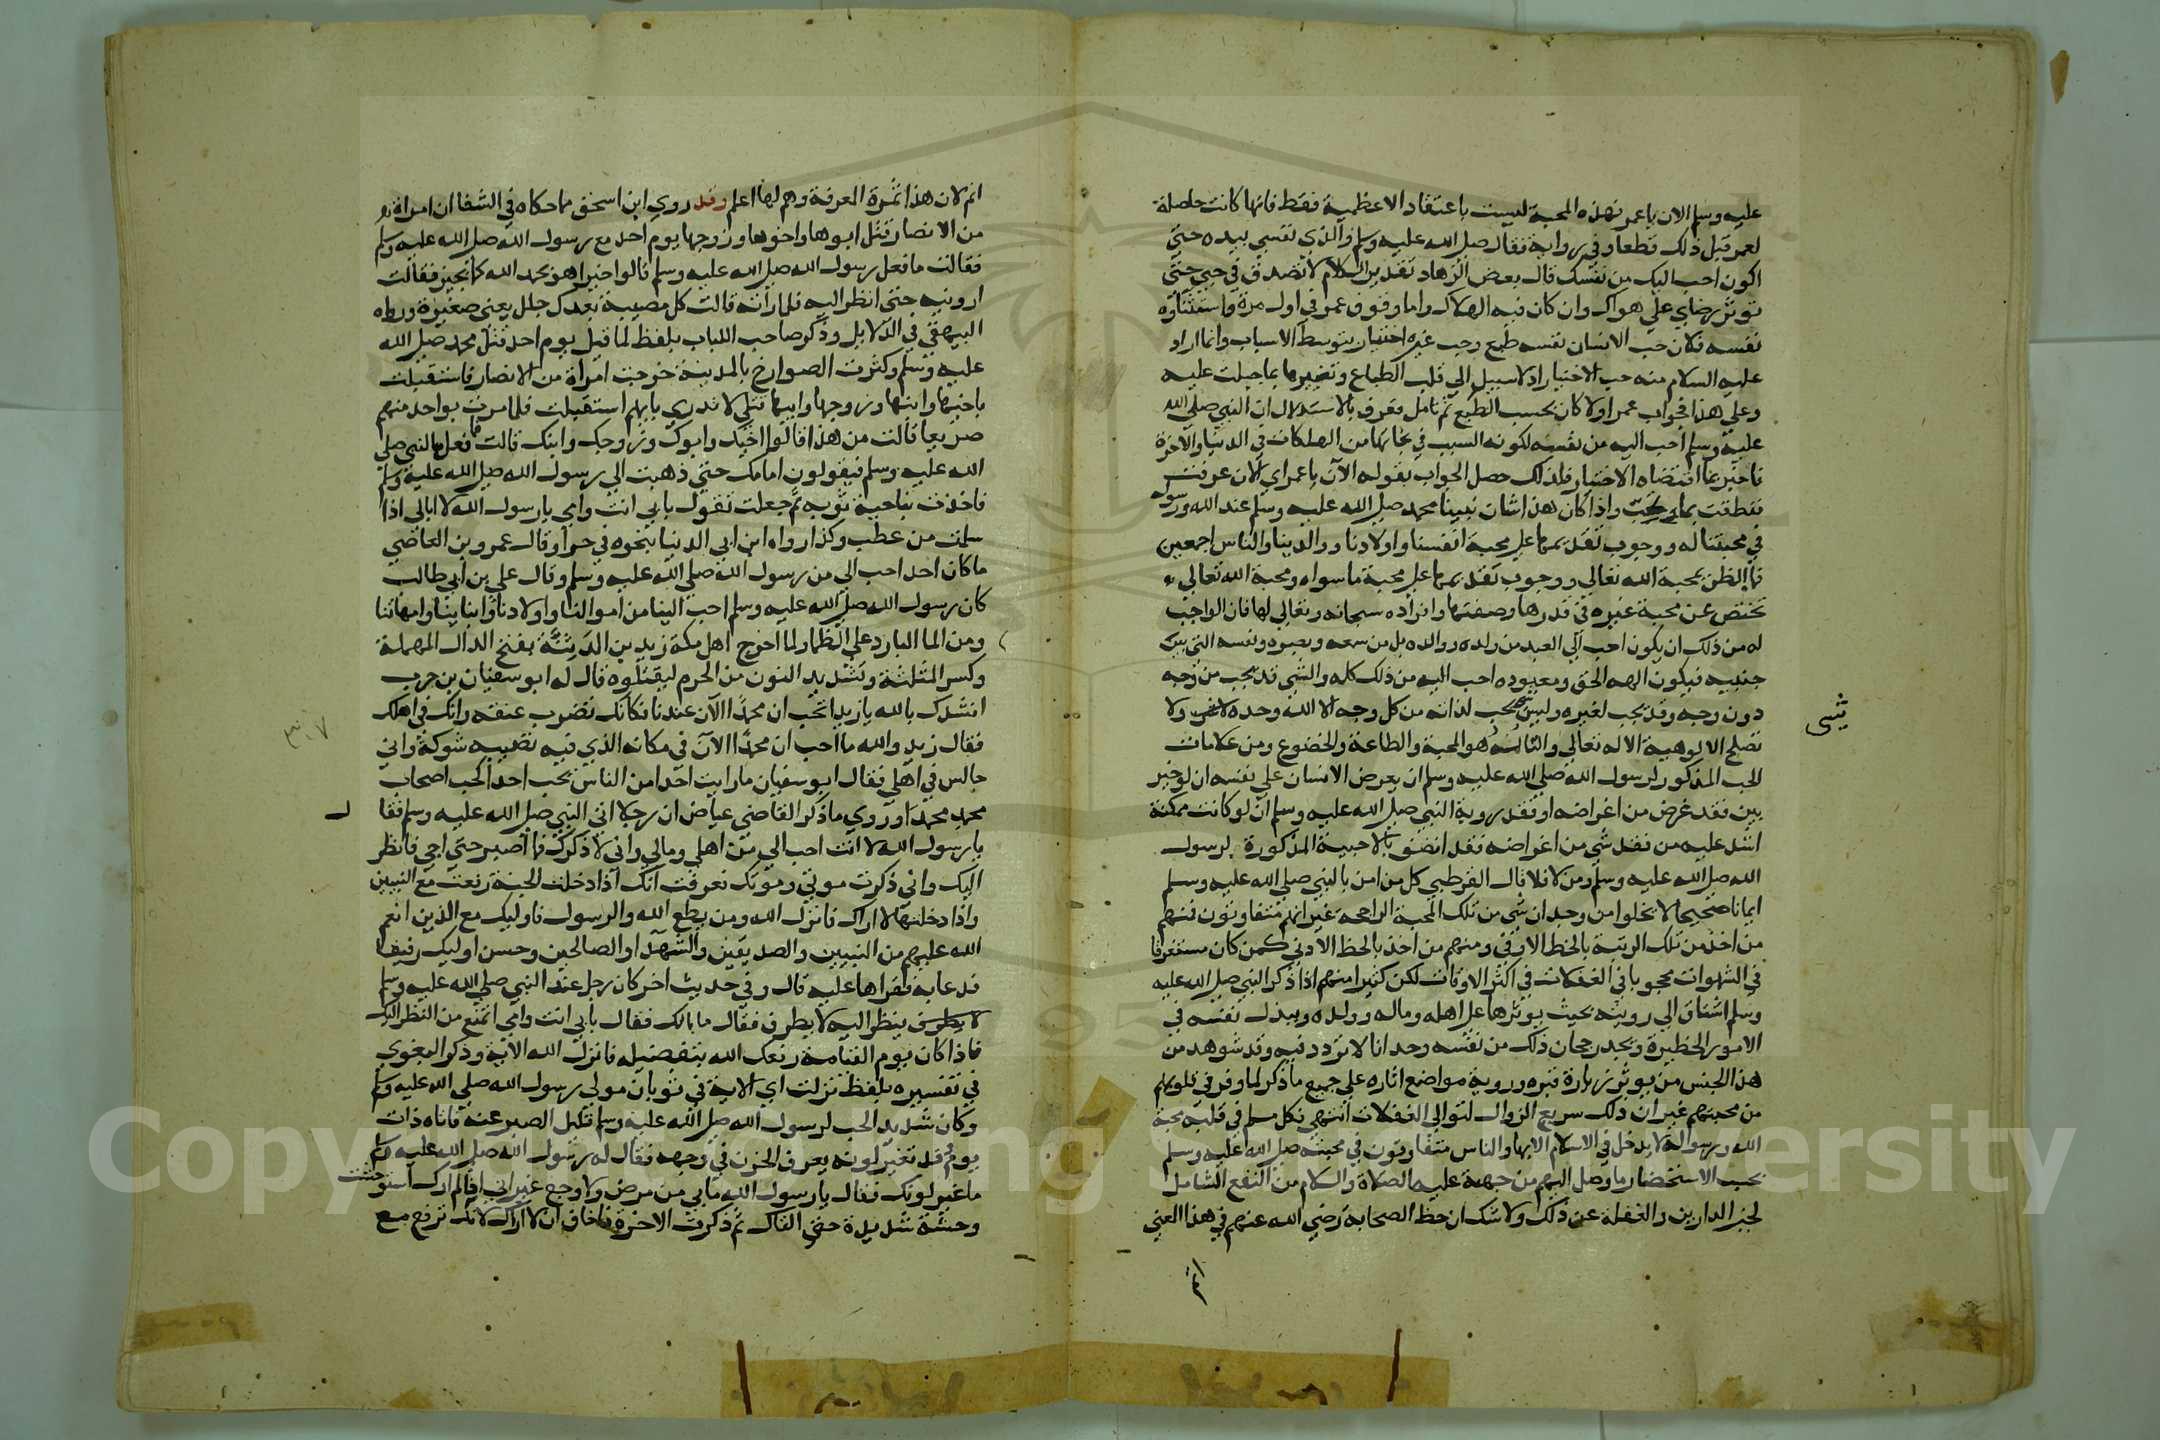 عليه وسلم الان ياعمر فهذه المحبة ليست باعتقاد الاعظمية فقط فانها كانت حاصلة
لعمر قبل ذلك قطعا وفي رواية فقال صلى الله عليه وسلم والذي نفسي بيده حتي
اكون احب اليك من نفسك قال بعض الزهاد تقدير الكلام لا تصدق في حبي حتي
توثر رضاي علي هواك وان كان فيه الهلاك واما وقوف عمر في اول مرة واستثناوه
نفسه فلان حب الانسان نفسه طبع وحب غيره اختيار بتوسط الاسباب وانما اراد
عليه السلام منه حب الاختيار اذ لاسبيل الي قلب الطباع وتغييرها عما جبلت عليه
وعلي هذا فجواب عمر اولا كان بحسب الطبع ثم تامل فعرف بالاستدلال ان النبي صلي الله
عليه وسلم احب اليه من نفسه لكونه السبب في نجاتها من الهلكات في الدنيا والاخرة
فاخبر بما اقتضاه الاختيار فلذلك حصل الجواب بقوله الان ياعمر اي الان عرفت
فنطقت بما يجب واذا كان هذا شان نبينا محمد صلى الله عليه وسلم عند الله ورسوله
في محبتنا له ووجوب تقديمها علي محبة انفسنا واولادنا ووالدينا والناس اجمعين
فما الظن بمحبة الله تعالي ووجوب تقديمها علي محبة ما سواه ومحبة الله تعالي
تختص عن محبة غيره في قدرها وصفتها وافراده سبحانه وتعالي لها فان الواجب
له من ذلك ان يكون احب الي العبد من ولده ووالده بل من سمعه وبصره ونفسه التي بين
جنبيه فيكون الهه الحق ومعبوده احب اليه من ذلك كله والشي قد يحب من وجه
دون وجه وقد يحب لغيره وليس يحب لذاته من كل وجه الا الله وحده ولا
شيي
تصلح الالوهية الا له تعالي والتاله هو المحبة والطاعة والخضوع ومن علامات
الحب المذكور لرسول الله صلي الله عليه وسلم ان يعرض الانسان علي نفسه ان لو خير
بين فقد غرض من اغراضه او فقد روية النبي صلى الله عليه وسلم ان لو كانت ممكنة
اشد عليه من فقد شي من اغراضه فقد اتصف بالاحبية المذكورة لرسول
الله صلى الله عليه وسلم ومن لا فلا قال القرطبي كل من امن بالنبي صلي الله عليه وسلم
ايمانا صحيحا لا يخلوا من وجدان شي من تلك المحبة الراجحة غير انهم متفاوتون فمنهم
من اخذ من تلك الرتبة بالحظ الاوفي ومنهم من اخذ بالحظ الادني كمن كان مستغرقا
في الشهوات محجوبا في الغفلات في اكثر الاوقات لكن كثيرا منهم اذا ذكر النبي صلى الله عليه
وسلم اشتاق الي رويته بحيث يوثرها علي اهله وماله وولده ويبذل نفسه في
الامور الخطيرة ويجد رجحان ذلك من نفسه وجدانا لا تردد فيه وقد شوهد من
هذا الجنس من يوثر زيارة قبره وروية مواضع اثاره علي جميع ما ذكر لما وقر في قلوبهم
من محبتهم غير ان ذلك سريع الزوال لتوالي الغفلات انتهي فكل مسلم في قلبه محبة
الله ورسوله لا يدخل في الاسلام الا بها والناس متفاوتون في محبته صلى الله عليه وسلم
بحسب الاستحضار ما وصل اليهم من جهته عليه الصلاة والسلام من النفع الشامل
لخير الدارين والغفلة عن ذلك ولا شك ان حظ الصحابة رضي الله عنهم في هذا المعني
اتم
اتم لان هذا ثمرة المعرفة وهم لها اعلم وقد روي ابن اسحق مما حكاه في الشفا ان امراة
من الانصار قتل ابوها واخوها وزوجها يوم احد مع رسول الله صلى الله عليه وسلم
فقالت ما فعل رسول الله صلى الله عليه وسلم قالوا خيرا هو بحمد الله كما تحبين فقالت
ارونيه حتي انظر اليه فلما راته قالت كل مصيبة بعدك جلل يعني صغيرة ورواه
البيهقي في الدلايل وذكر صاحب اللباب بلفظ لما قيل يوم احد قتل محمد صلى الله
عليه وسلم وكثرت الصوارخ بالمدينة خرجت امراة من الانصار فاستقبلت
باخيها وابنها وزوجها وابيها قتلي لا تدري بايهم استقبلت فلما مرت بواحد منهم
صريعا قالت من هذا قالوا اخيك وابوك وزوجك وابنك قالت فما فعل بالنبي صلي
الله عليه وسلم فيقولون امامك حتي ذهبت الي رسول الله صلى الله عليه وسلم
فاخذت بناحية ثوبه ثم جعلت تقول بابي انت وامي يا رسول الله لا ابالي اذا
سلمت من عطب وكذا رواه ابن ابي الدنيا بنحوه وقال عمرو بن العاصي
ما كان احد احب الي من رسول الله صلي الله عليه وسلم وقال علي بن ابي طالب
كان رسول الله صلى الله عليه وسلم احب الينا من اموالنا واولادنا وابناينا وامهاتنا
ومن الما البارد علي الظما ولما اخرج اهل مكة زيد بن الدثنة بفتح الدال المهملة
وكسر المثلثة وتشديد النون من الحرم ليقتلوه قال له ابو سفيان بن حرب
انشدك بالله يا زيد اتحب ان محمدا الان عندنا مكانك نضرب عنقه وانك في اهلك
فقال زيد والله ما احب ان محمدا الان في مكانه الذي فيه تصيبه شوكة واني
جالس في اهلي فقال ابو سفيان ما رايت احدا من الناس يحب احدا كحب اصحاب
محمد محمدا وروي ما ذكر القاضي عياض ان رجلا اتي النبي صلى الله عليه وسلم فقا
ل
يا رسول الله لانت احب الي من اهلي ومالي واني لاذكرك فما اصبر حتي اجي فانظر
اليك واني ذكرت موتي وموتك فعرفت انك اذا دخلت الجنة رفعت مع النبيين
واذا دخلتها لا اراك فانزل الله ومن يطع الله والرسول فاوليك مع الذين انعم
الله عليهم من النبيين والصديقين والشهدا والصالحين وحسن اوليك رفيقا
فدعا به فقراها عليه قال وفي حديث اخر كان رجل عند النبي صلي الله عليه وسلم
ينظر اليه لا يطرف فقال ما بالك فقال بابي انت وامي اتمتع من النظر اليك
فاذا كان يوم القيامة رفعك الله بتفضيله فانزل الله الاية وذكر البغوي
في تفسيره بلفظ نزلت اي الاية في ثوبان مولي رسول الله صلي الله عليه وسلم
وكان شديد الحب لرسول الله صلى الله عليه وسلم قليل الصبر عنه فاتاه ذات
يوم قد تغير لونه يعرف الحزن في وجهه فقال له رسول الله صلى الله عليه وسلم
ما غير لونك فقال يا رسول الله ما بي من مرض ولا وجع غير اني اذا لم ارك استوحشت
وحشة شديدة حتي القاك ثم ذكرت الاخرة فاخاف ان لا اراك لانك ترفع مع
٣٠٧
Copyright © King Saud University